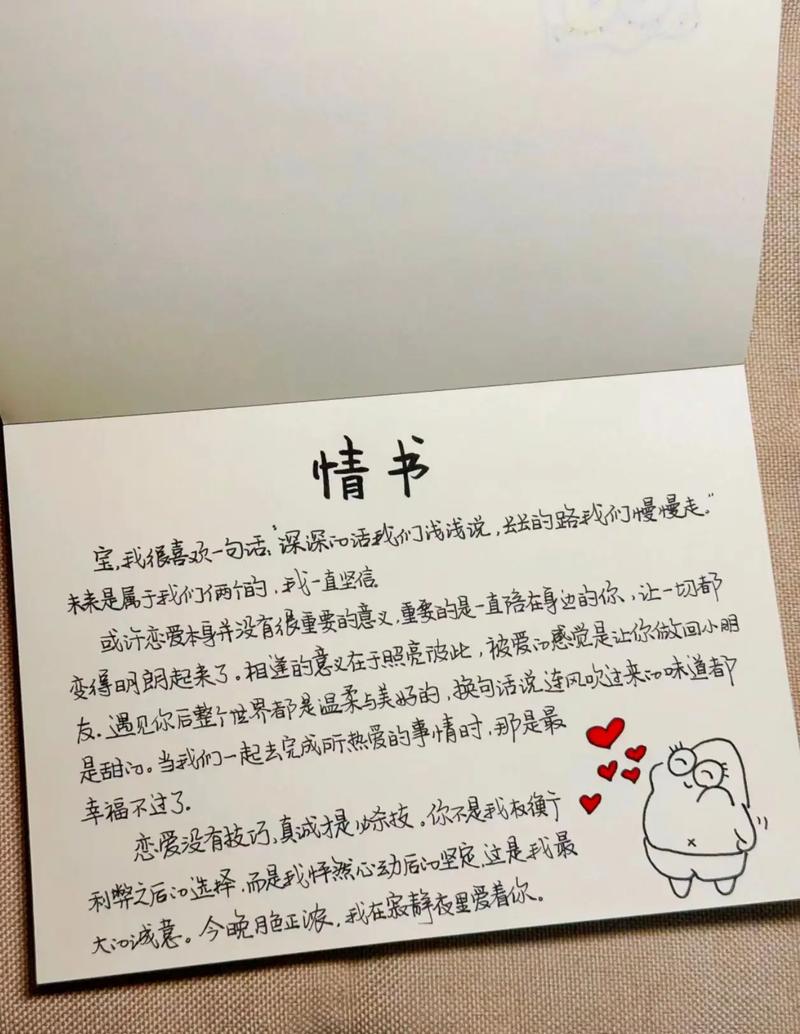 情书
宝,我很喜欢一句话:“深深的话我们浅浅说,长长的路我们慢慢走。”
未来是属于我们俩个的,我一直坚信
或许恋爱本身并没有很重要的意义,重要的是一直陪在身边的你、让一切都
变得明朗起来了。相逢的意义在于照亮彼此,被爱的感觉是让你做回小朋
友。遇见你后整个世界都是温柔与美好的,换句话说连风吹过来的味道都
是甜的。当我们一起去完成所热爱的事情时,那是最
幸福不过了.
恋爱没有技巧,真诚才是必杀技。你不是我权衡
利弊之后的选择,而是我怦然心动后的坚定,这是我最
大的诚意。今晚月色正浓,我在寂静夜里爱着你。